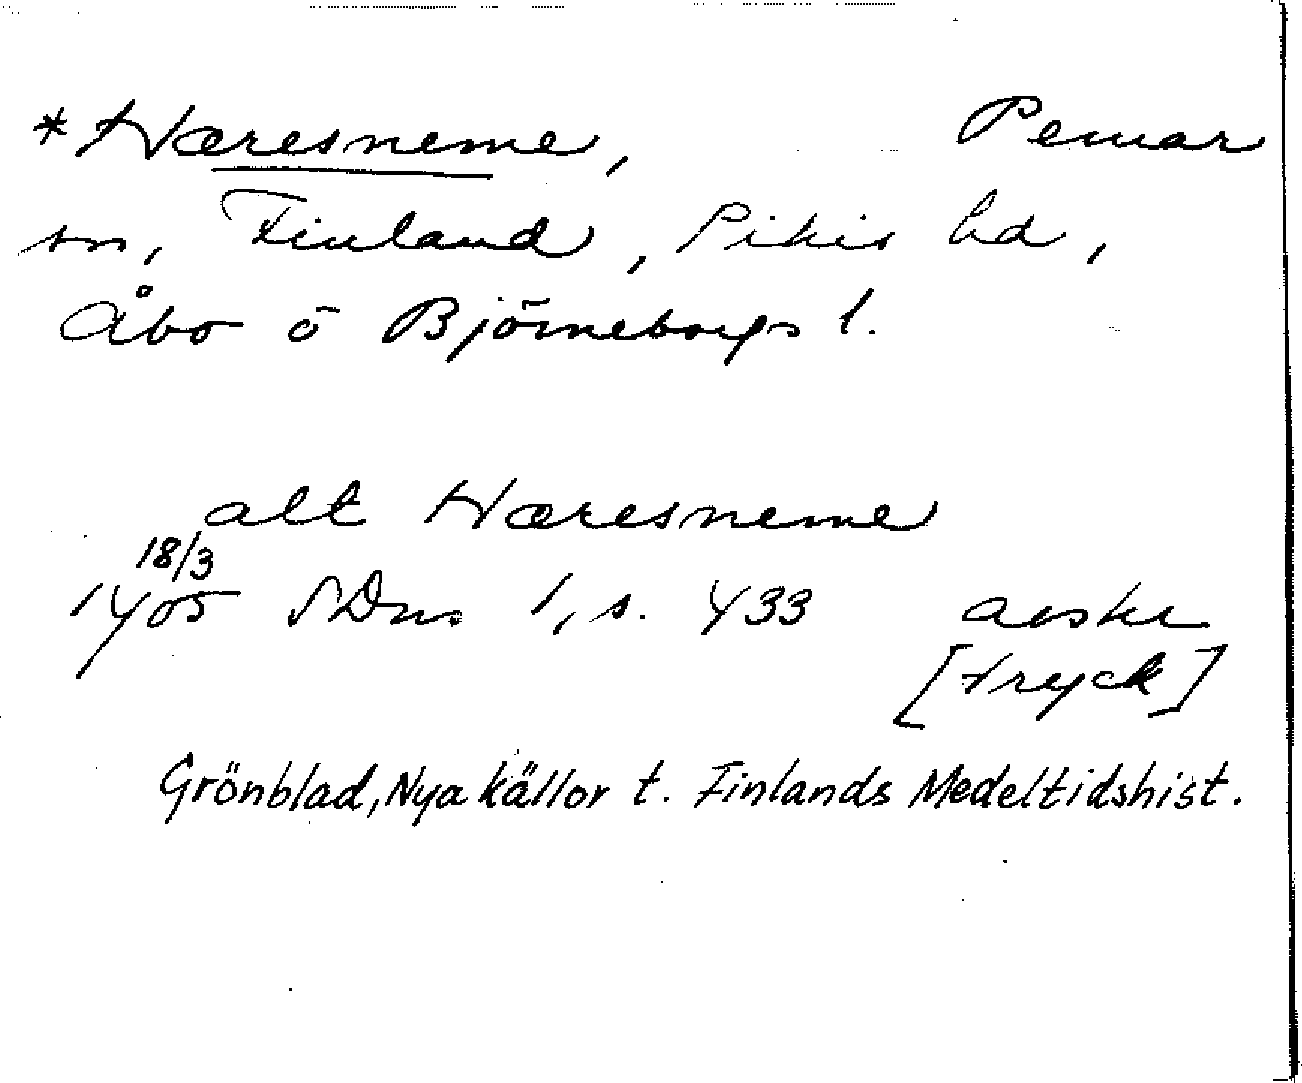 *Næresneme, Pemar
sn, Finland, Pikis hd,
Åbo o Björneborgs l.
alt Næresneme
18/3
1405 SDns 1, s. 433 avskr
[tryck]
Grönblad, Nya källor t. Finlands Medeltidshist.